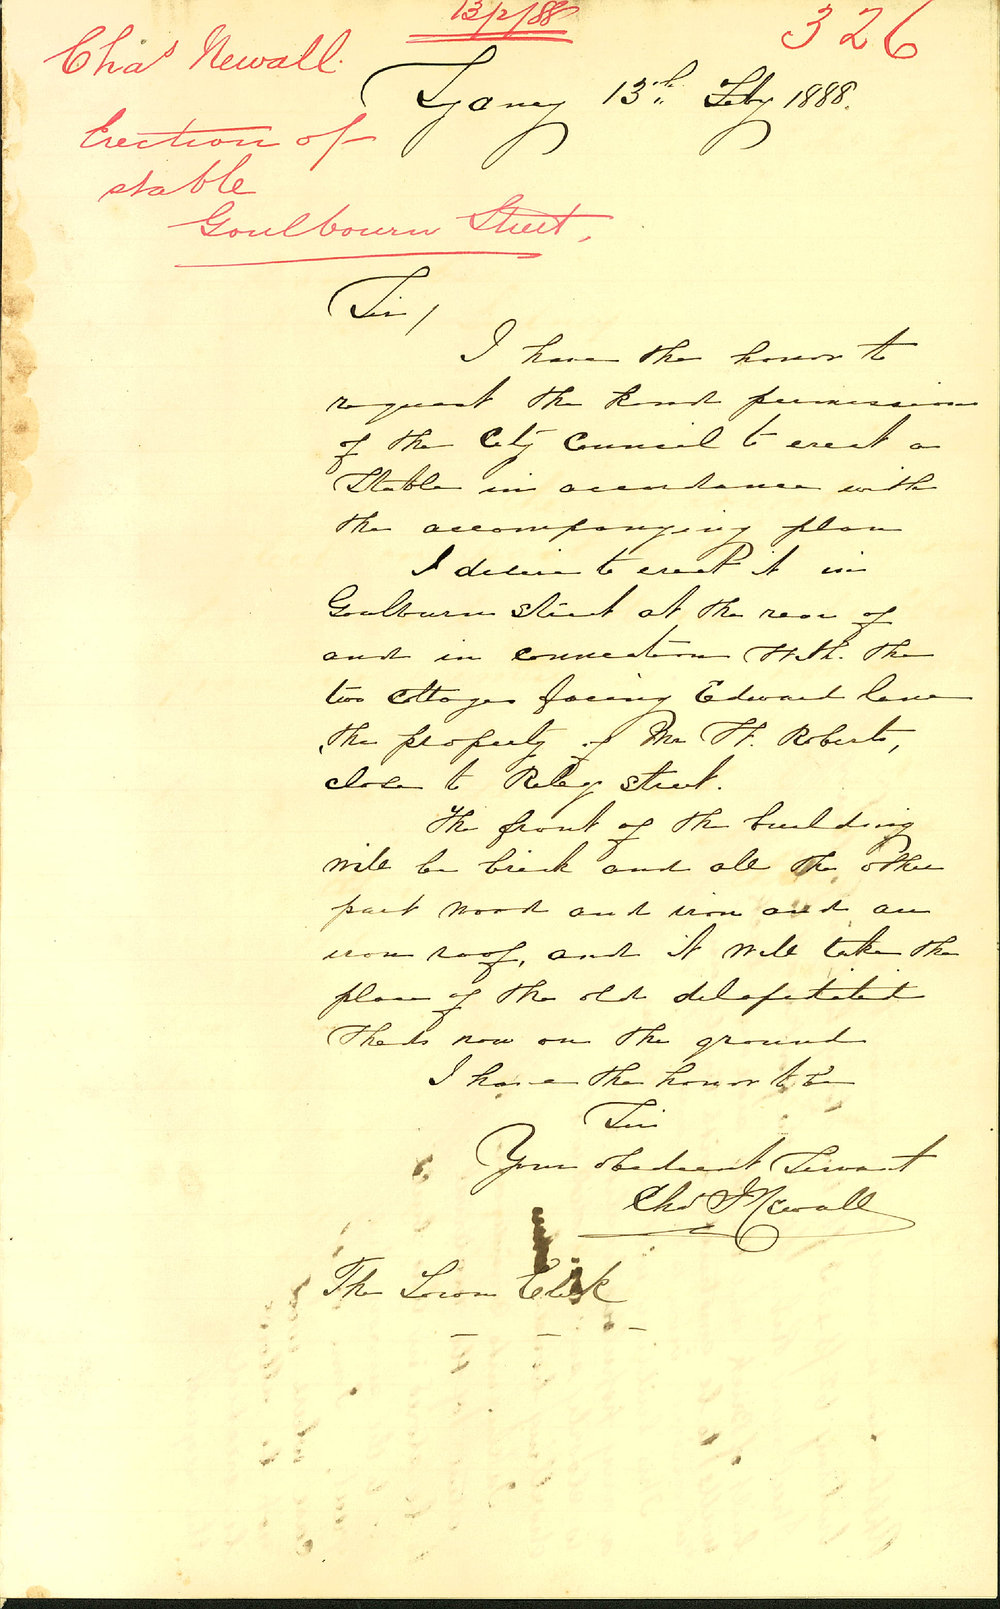 13/2/88
326
Chas Newall.
Sydney 13th Feby 1888.
Erection of
stable
Goulbourn Street,
Sir,
I have the honor to
request the kind permission
of the City Council to erect a
Stable in accordance with
the accompanying plan
I desire to erect it in
Goulburn Street at the rear of
and in connection with the
two cottages facing Edward lane
the property of Mr W. Roberts,
close to Riley street.
The front of the building
will be brick and all the other
part wood and iron and an
iron roof, and it will take the
place of the old delapitated
sheds now on the ground
I have the honor to be
Sir
Your obedient Servant
Chas Newall
The Town Clerk